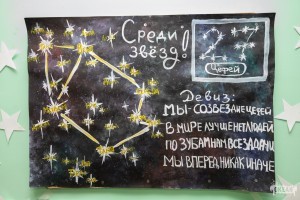 Среди
звёзд!
Церей
Девиз:
МЫ-СОЗВЕЗДИЕ ЦЕРЕЙ
В МИРЕ ЛУЧШЕ НЕТ ЛЮДЕЙ
ПО ЗУБАМ НАМ ВСЕ ЗАДАЧИ
МЫ ВПЕРЕД, НИКАК ИНАЧЕ